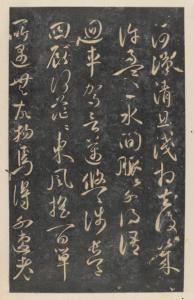 河漢清且淺相去復幾
許盈〻一水間脈〻不得語
迴車駕言邁悠〻涉長道
四顧何茫〻東風搖百草
所遇無故物焉得不速老